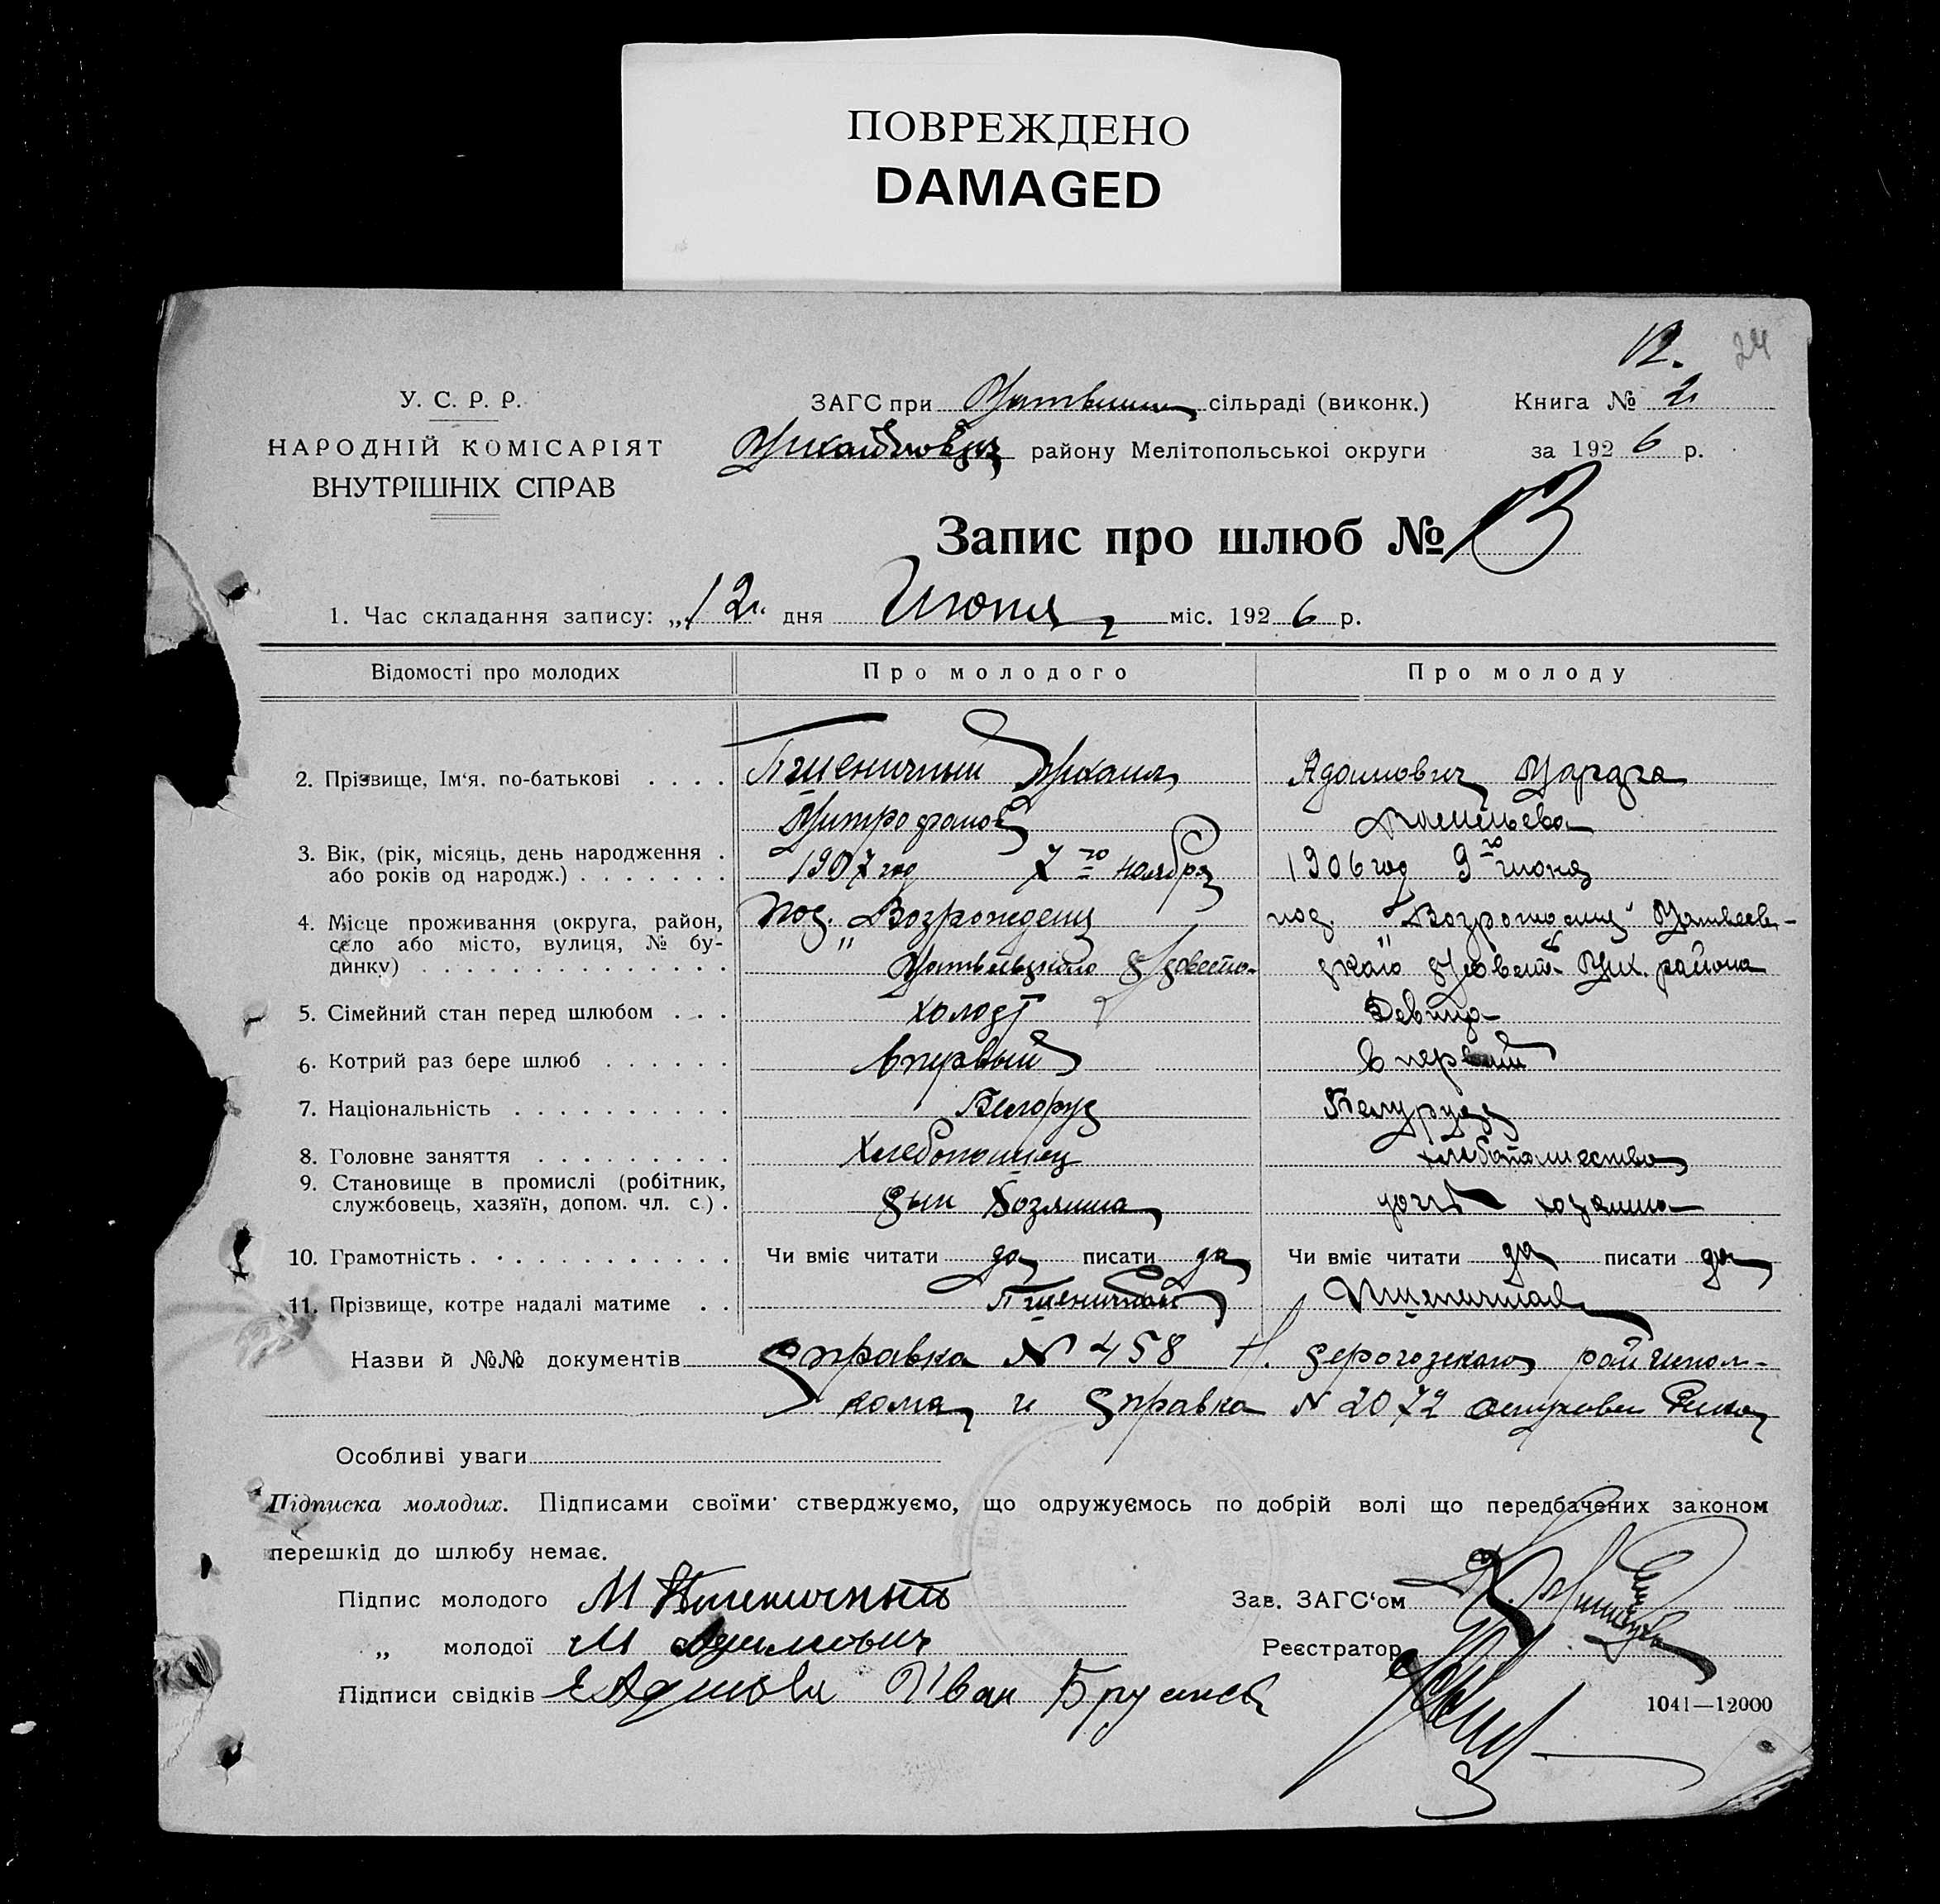 ПОВРЕЖДЕНО
DAMAGED
12.
24
У. С. Р. Р.
НАРОДНІЙ КОМІСАРІЯТ
ВНУТРІШНІХ СПРАВ
ЗАГС при сільраді (виконк.)
району Мелітопольської округи
Книга № 2
за 1926 р.
Запис про шлюб № 13
1. Час складання запису: „12" дня Июня міс. 1926 р.
Відомості про молодих Про молодого Про молоду
2. Прізвище, Ім'я, по-батькові . . . . Пшеничный Михаил Адамович
Митрофанов
3. Вік, (рік, місяць, день народження . 1907 год 7го ноября 1906 год 9го июня
або років од народж.) . . . . . . .
4. Місце проживання (округа, район, пос. „Возрожденц пос. „Возрожденц" Матвеев-
село або місто, вулиця, № бу- Матвеевского с/совета ского с/совета Мих. района
динку) . . . . . . . . . . . . . .
5. Сімейний стан перед шлюбом . . . холост Девица
6. Котрий раз бере шлюб . . . . . . впервый в первый
7. Національність . . . . . . . . . . Белорус
8. Головне заняття . . . . . . . . . Хлебопашец хлебопашество
9. Становище в промислі (робітник, сын Хозяина дочь хозяина
службовець, хазяїн, допом. чл. с.) .
10. Грамотність . . . . . . . . . . . Чи вміє читати да писати да Чи вміє читати да писати да
11. Прізвище, котре надалі матиме . . Пшеничный Пшеничная
Назви й №№ документів справка № 458 Н. Серогозского райиспол-
кома и справка № 2072
Особливі уваги
Підписка молодих. Підписами своїми стверджуємо, що одружуємось по добрій волі що передбачених законом
перешкід до шлюбу немає.
Підпис молодого М Пшеничный Зав. ЗАГС'ом
„ молодої М Адамович Реєстратор
Підписи свідків Иван
1041—12000